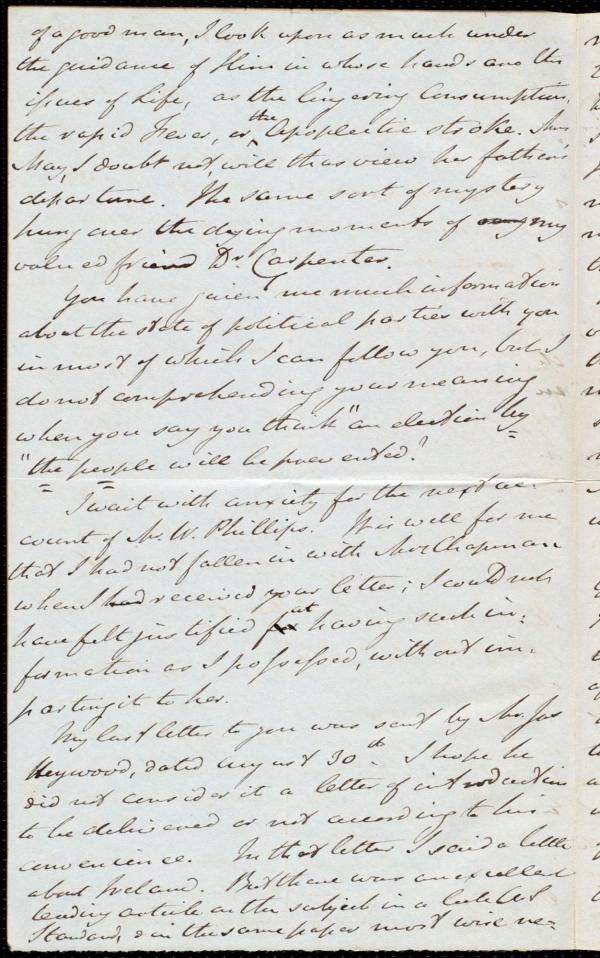 of a good man, I look upon as much under
the guidance of Him in whose hands are the
issues of Life, as the lingering Consumption,
the rapid Fever, or the Apoplectic stroke. Mrs
May, I doubt not, will thus view her father's
departure. The same sort of mystery
hung over the dying moments of my
valued friend Dr Carpenter.
You have given me much information
about the state of political parties with you
in most of which I can follow you, but I
do not comprehending your meaning
when you say you think "an election by
"the people will be prevented."
I wait with anxiety for the next ac-
count of Mr. W. Phillips. It is well for me
that I had not fallen in with Mrs Chapman
when I had received your letter; I could not
have felt justified at having such in-
formation as I possessed, without im-
parting it to her.
My last letter to you was sent by Mr. Jas
Heywood, dated August 30th. I hope he
did not consider it a letter of introduction
to be delivered or not according to his
convenience. In that letter I said a little
about Ireland. But there was an excellent
leading article on the subject in a late A S
Standard, & in the same paper most wise re-